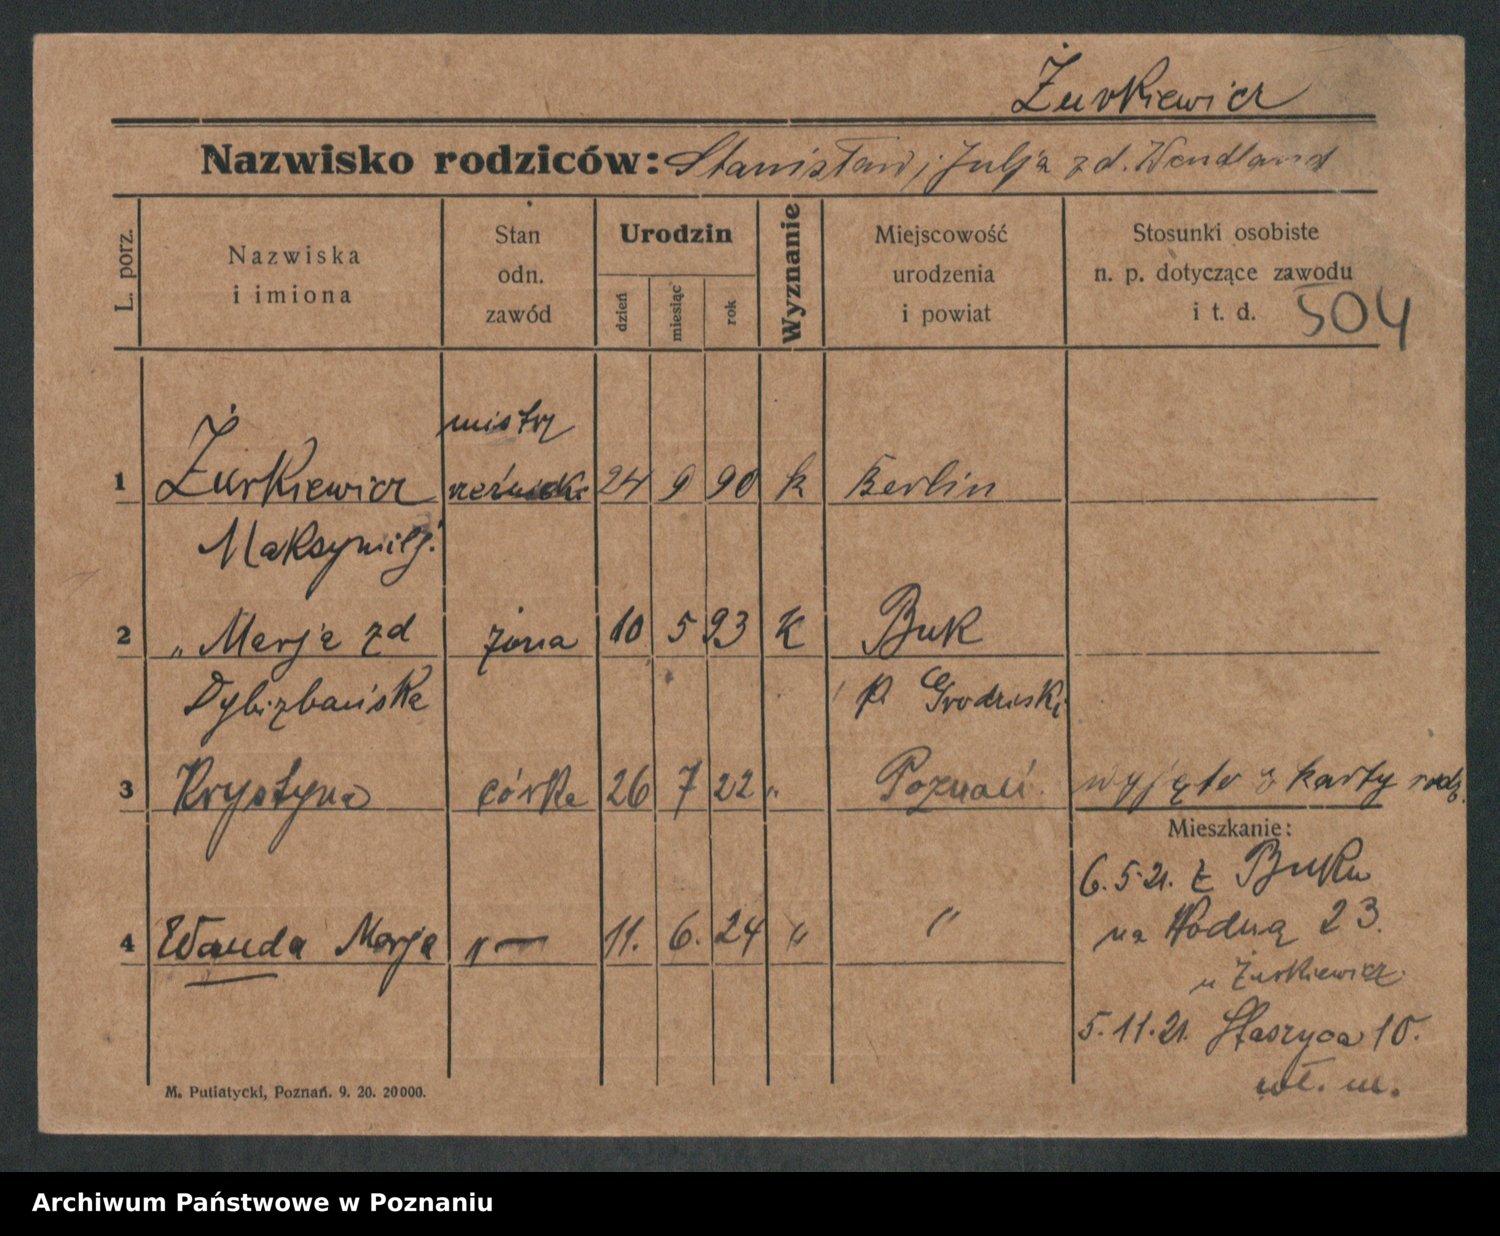 Żurkiewicz
Nazwisko rodziców: Stanisław i Julja zd. Wendland
L. porz.
Nazwiska
i imiona
Stan
odn.
zawód
Urodzin
dzień
miesiąc
rok
Wyznanie
Miejscowość
urodzenia
i powiat
Stosunki osobiste
n. p. dotyczące zawodu
i t. d.
504
mistrz
1 Żurkiewicz rzeźnicki 24 9 90 k Berlin
Maksymilj.
2 „ Marja zd żona 10 5 93 k Buk
Dybizbańska p. Grodziski
3 Krystyna córka 26 7 22 „ Poznań. wyjęto z karty rodz.
Mieszkanie:
6.5.21. z Buku
na Wodną 23.
u Żurkiewicz.
4 Wanda Marja „— 11. 6. 24 „ „
5.11.21. Staszyca 10.
wł. m.
M. Putiatycki, Poznań. 9. 20. 20000.
Archiwum Państwowe w Poznaniu